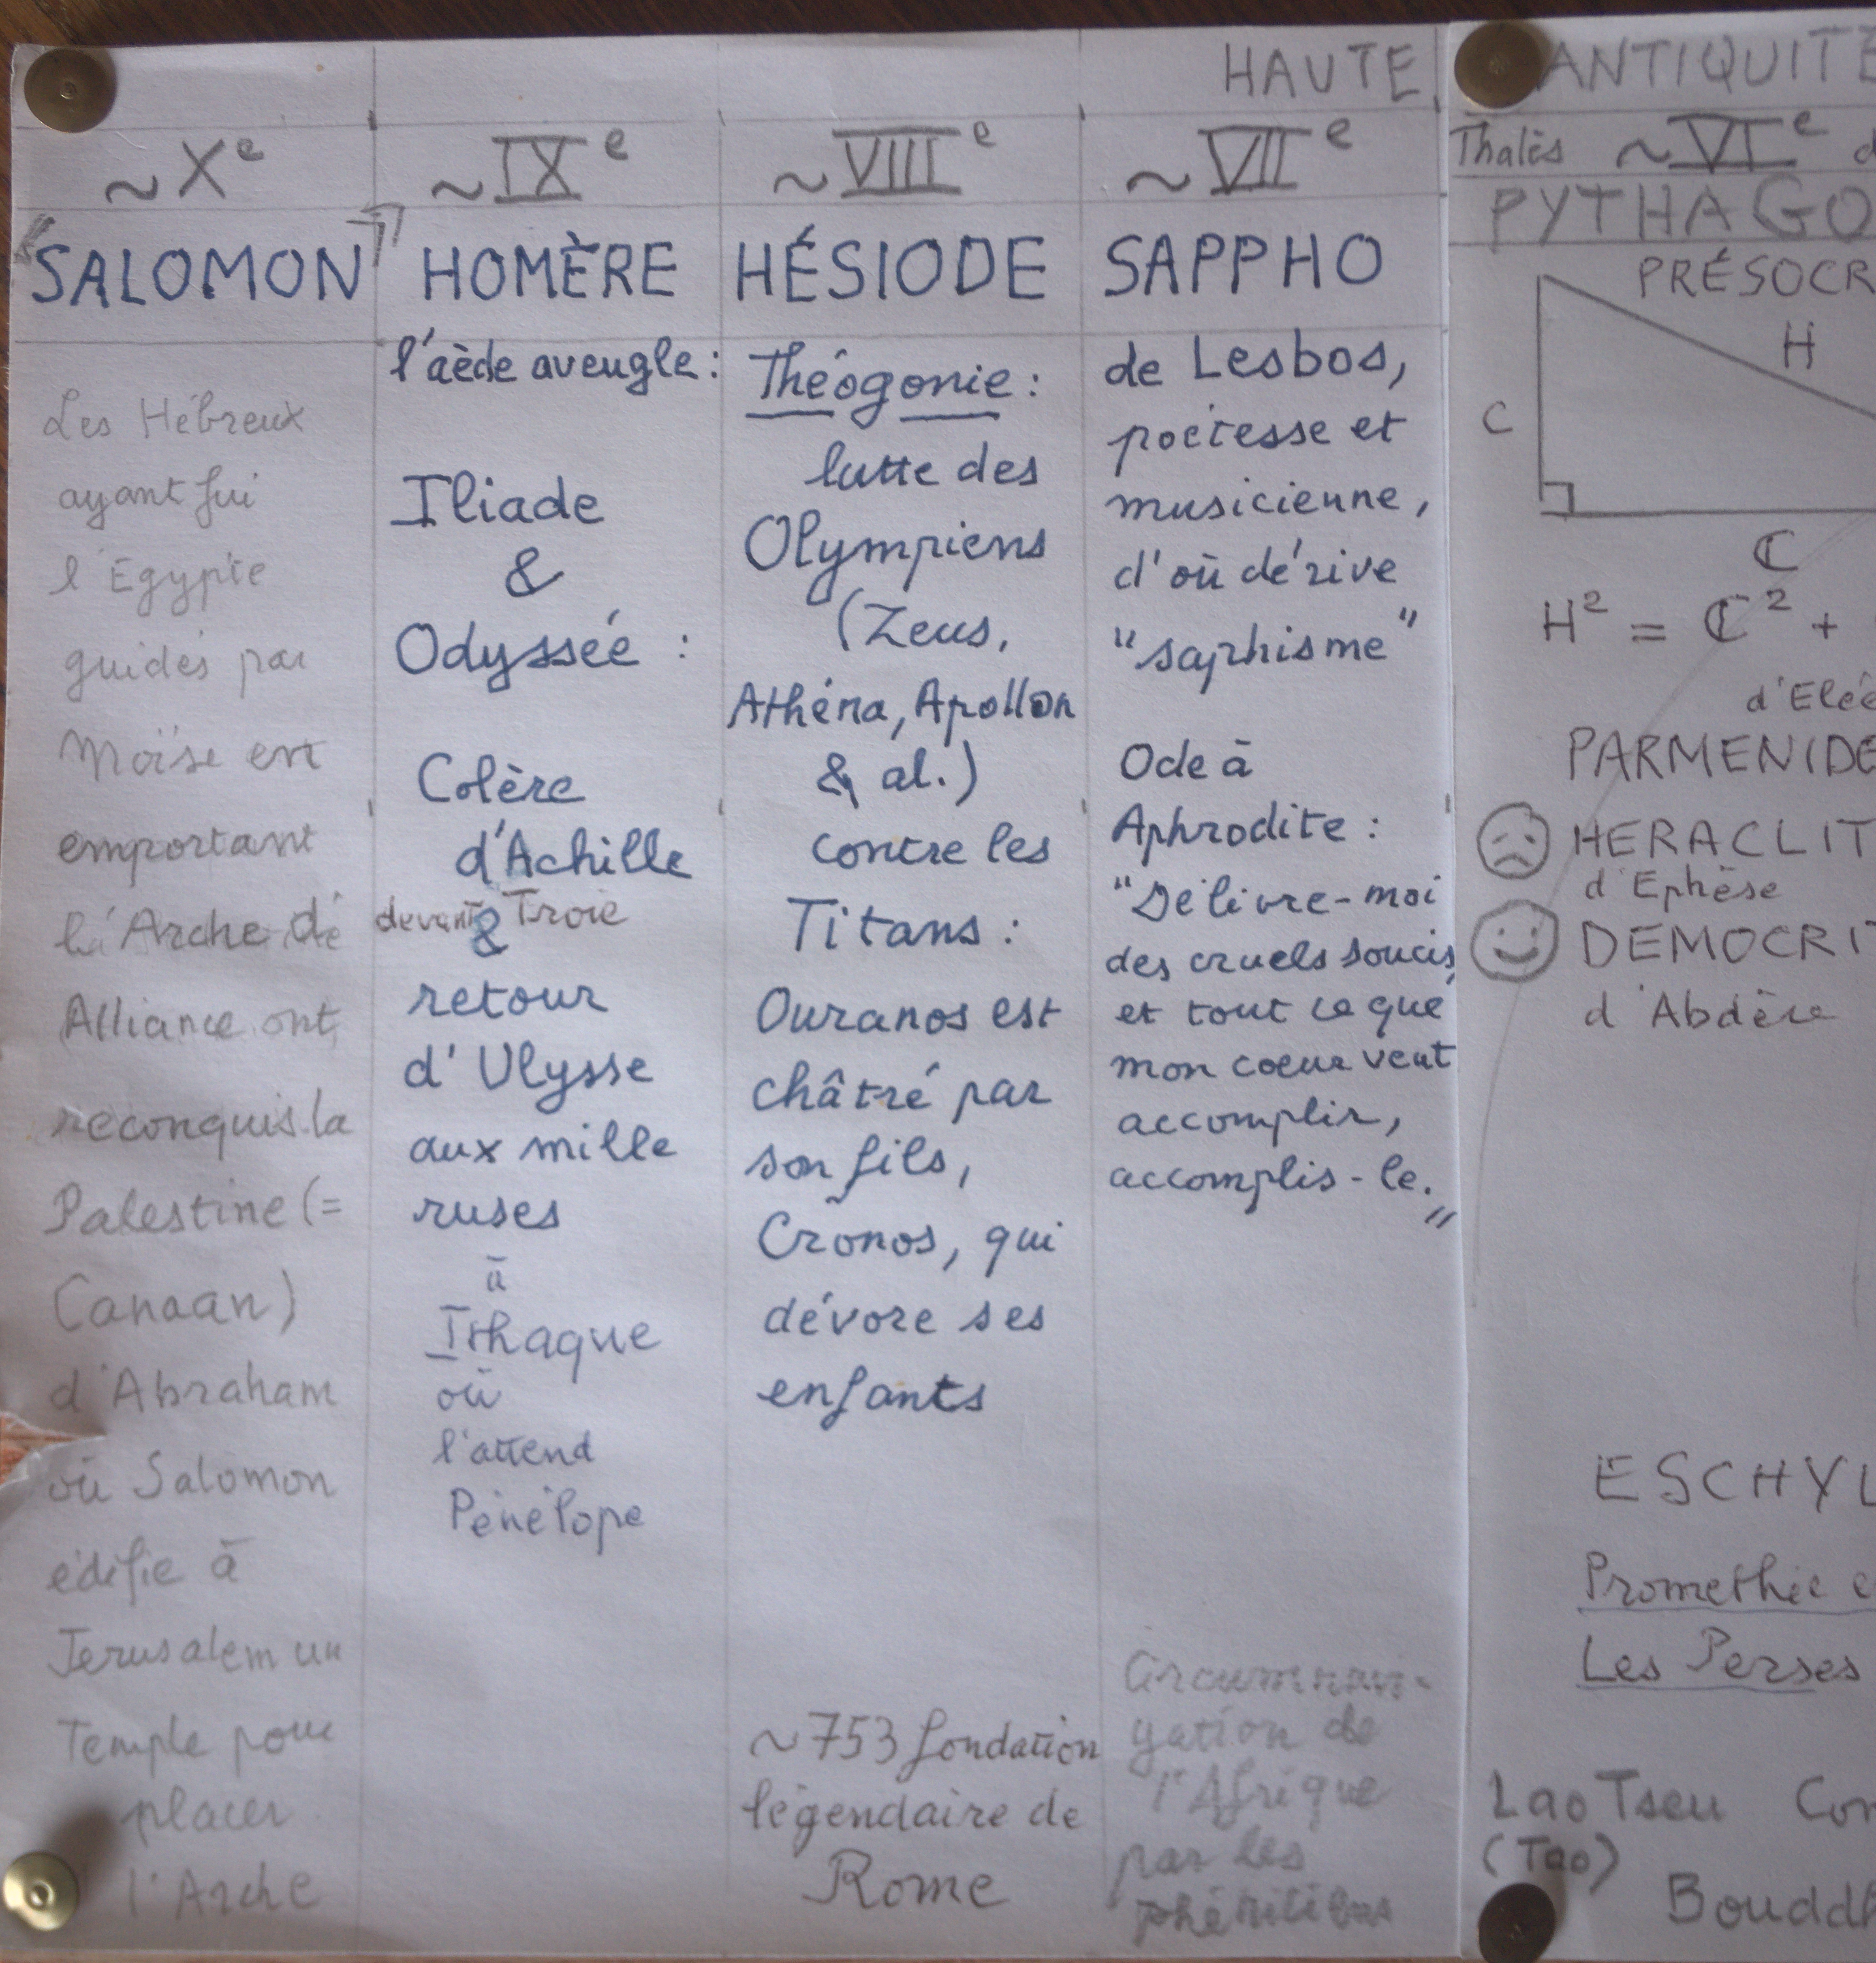 HAUTE ANTIQUITÉ
~Xe
"SALOMON"
Les Hébreux
ayant fui
l'Egypte
guidés par
Moïse en
emportant
l'Arche de
Alliance ont
reconquis la
Palestine (=
Canaan)
d'Abraham
où Salomon
édifie à
Jerusalem un
Temple pour
placer
l'Arche
~IXe
HOMÈRE
l'aède aveugle :
Iliade
&
Odyssée :
Colère
d'Achille
devant Troie
&
retour
d'Ulysse
aux mille
ruses
à
Ithaque
où
l'attend
Pénélope
~VIIIe
HÉSIODE
Théogonie :
lutte des
Olympiens
(Zeus,
Athéna, Apollon
& al.)
contre les
Titans :
Ouranos est
châtré par
son fils,
Cronos, qui
dévore ses
enfants
~753 fondation
légendaire de
Rome
~VIIe
SAPPHO
de Lesbos,
poétesse et
musicienne,
d'où dérive
"saphisme"
Ode à
Aphrodite :
"Délivre-moi
des cruels soucis,
et tout ce que
mon coeur veut
accomplir,
accomplis-le."
Circumnavi-
gation de
l'Afrique
par les
Thalès ~VIe d
PYTHAGO
PRÉSOCR
H
C
C
H² = C² +
d'Elée
PARMENIDE
HERACLIT
d'Ephèse
DEMOCRIT
d'Abdère
ESCHYL
Promethée e
Les Perses
Lao Tseu Con
(Tao)
Boudd